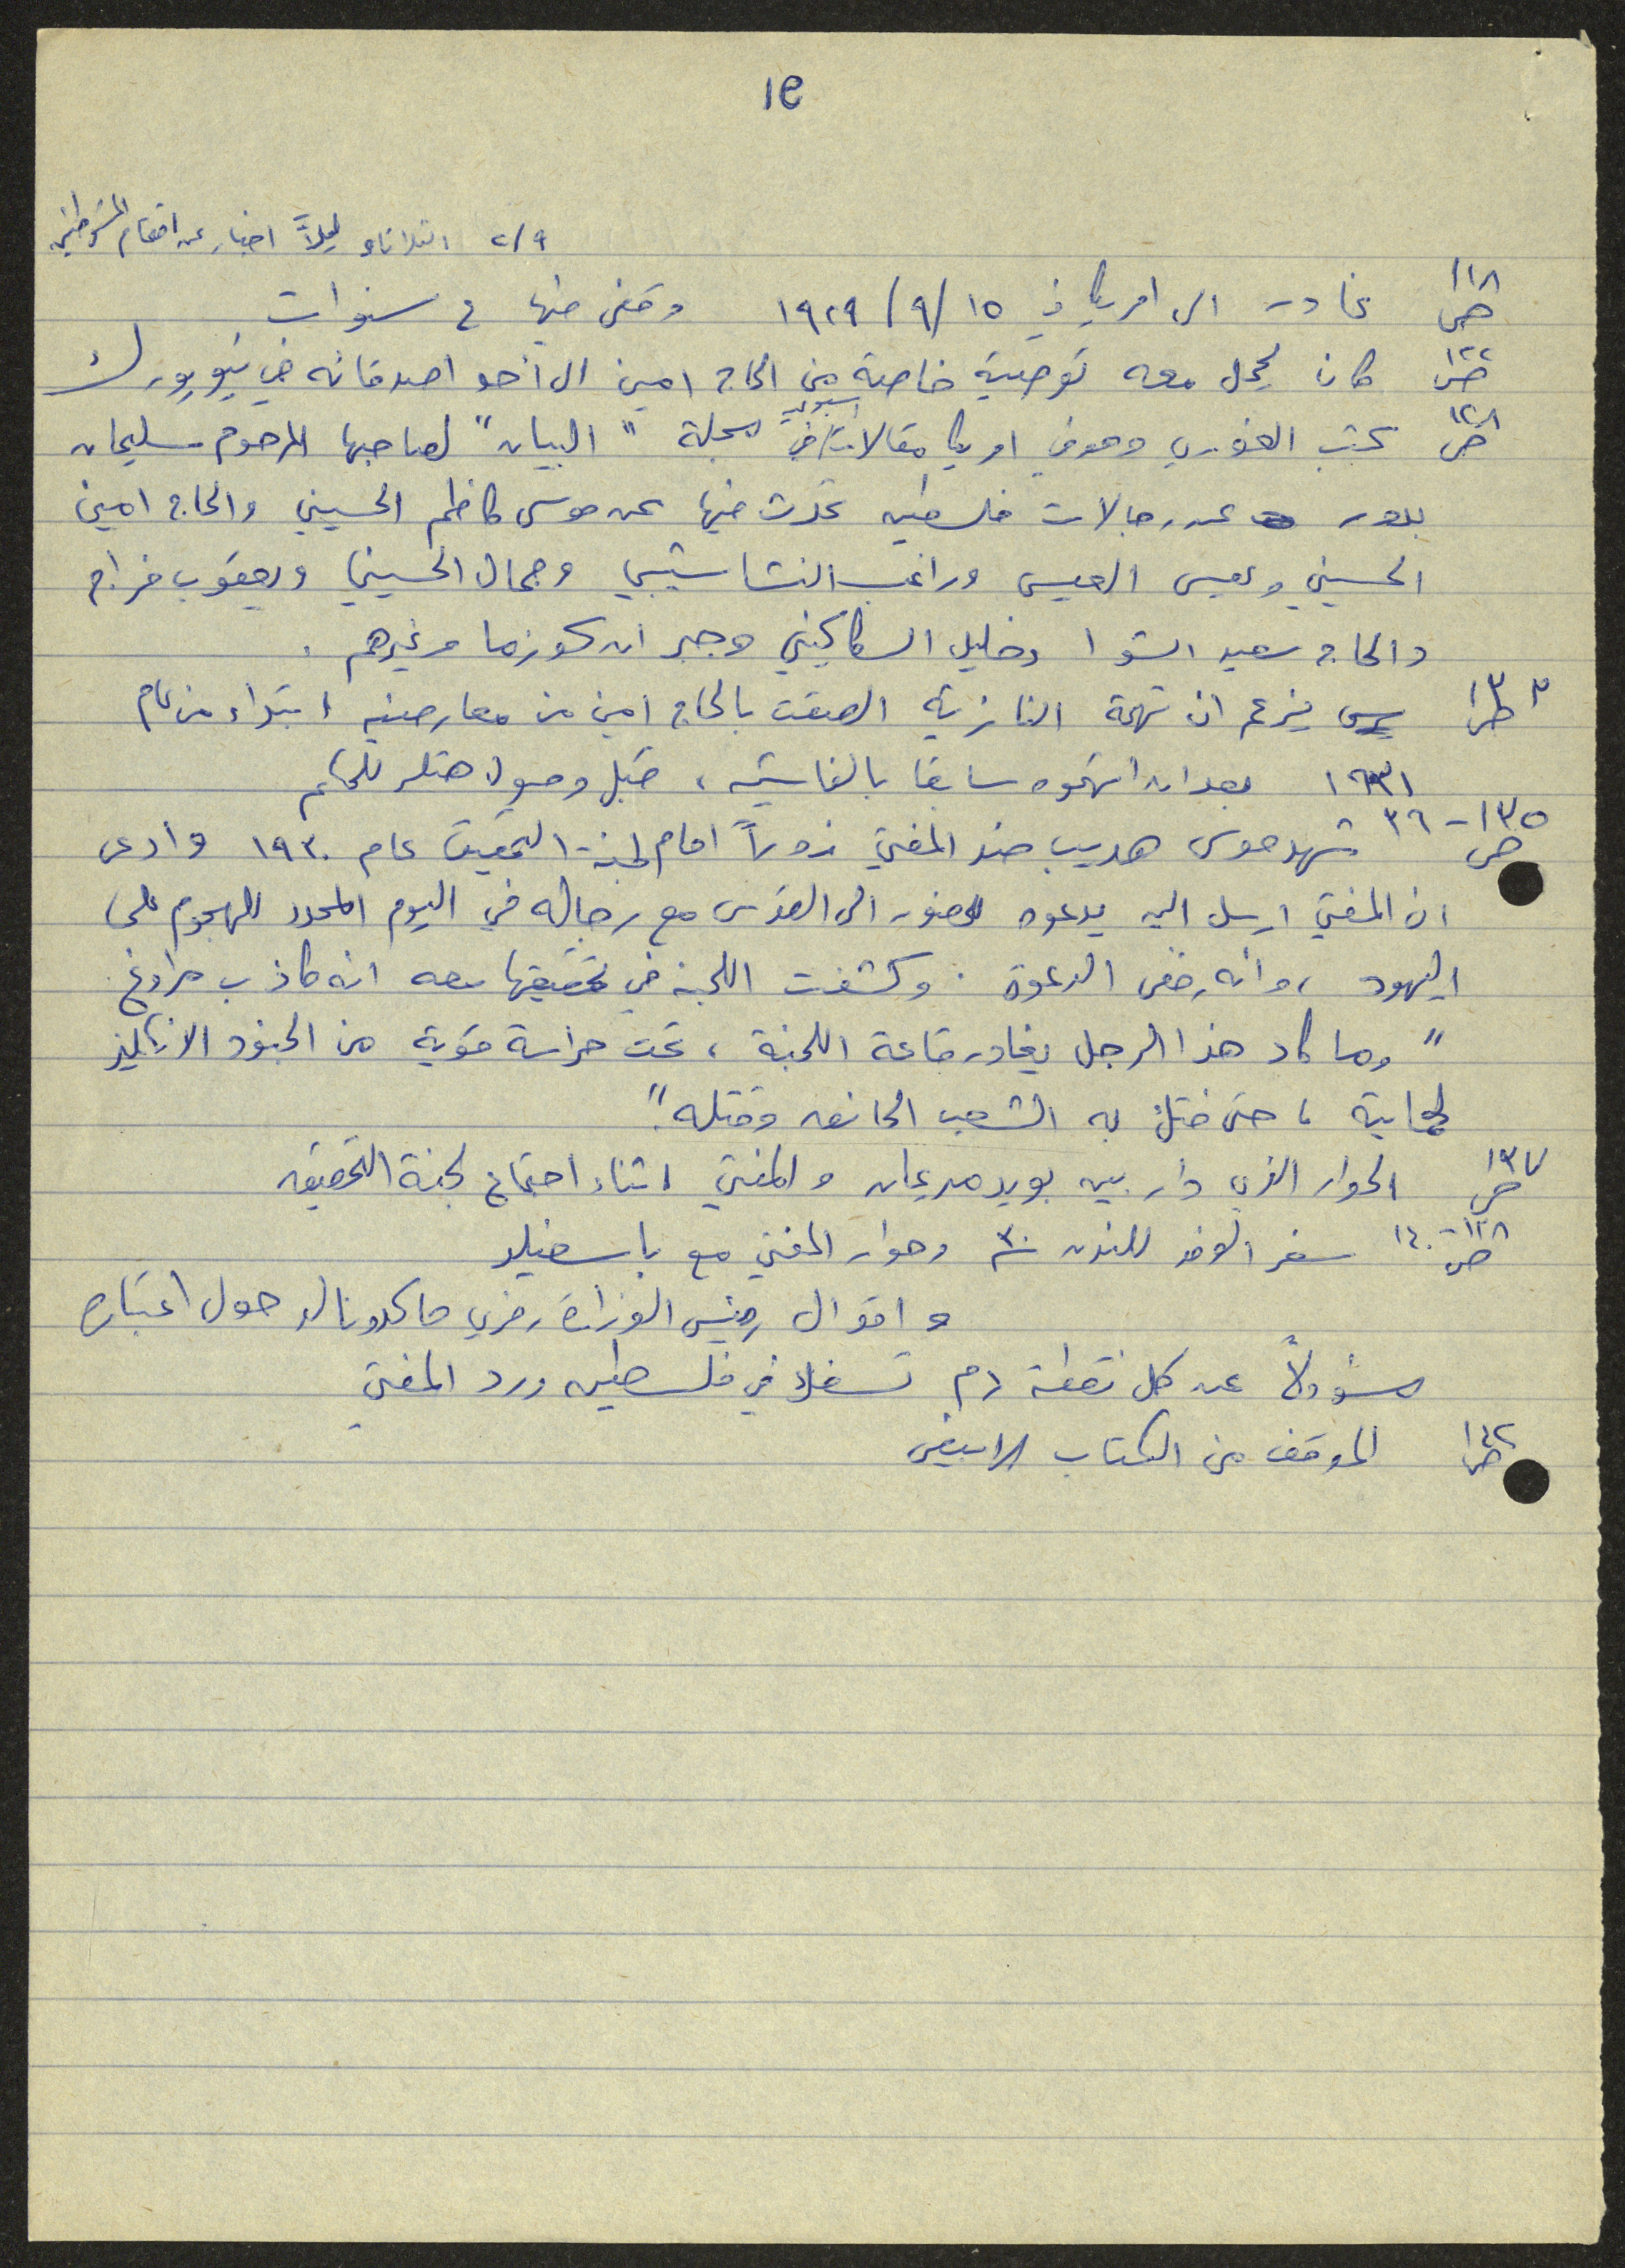 ١٢
٢/٩ الثلاثاء ليلاً اخبار عن اقتحام
ص ١١٨ غادر الى امريكا في ١٥ /٩/ ١٩٢٩ وقضى فيها ٣ سنوات
ص ١٢٢ كان يحمل معه توصية خاصة من الحاج امين الى أحد اصدقائه في نيويورك
ص ١٢٨ كتب الغوري وهو في امريكا مقالات اسبوعية في مجلة "البيان" لصاحبها المرحوم سليمان
بدور عن رجالات فلسطين تحدث فيها عن موسى كاظم الحسيني والحاج امين
الحسيني وعيسى العيسى وراغب النشاشيبي وجمال الحسيني ويعقوب فراج
والحاج سعيد الشوا وخليل السكاكيني وجبران كوزما وغيرهم .
ص ١٣٣ يزعم ان تهمة النازية الصقت بالحاج امين من معارضيه ابتداء من عام
١٩٣١ بعد ان اتهموه سابقا بالفاشية ، قبل وصول هتلر للحكم
ص ١٣٥-٣٦ شهد موسى هديب ضد المفتي زوراً امام لجنة التحقيق عام ١٩٣٠ وادعى
ان المفتي ارسل اليه يدعوه للحضور الى القدس مع رجاله في اليوم المحدد للهجوم على
اليهود ، وانه رفض الدعوة . وكشفت اللجنة في تحقيقها معه انه كاذب مراوغ
" وما كاد هذا الرجل يغادر قاعة اللجنة ، تحت حراسة قوية من الجنود الانكليز
لحمايته ، حتى فتك به الشعب الحانق وقتله ."
ص ١٣٧ الحوار الذي دار بين بويد مريمان والمفتي اثناء اجتماع لجنة التحقيق
ص ١٣٨-١٤٠ سفر الوفد للندن ٣٠ وحوار المفتي مع باسفيلد
و اقوال رئيس الوزراء رمزي ماكدونالد حول اعتباره
مسؤولاً عن كل نقطة دم تسفك في فلسطين ورد المفتي
ص ١٤٢ الموقف من الكتاب الابيض